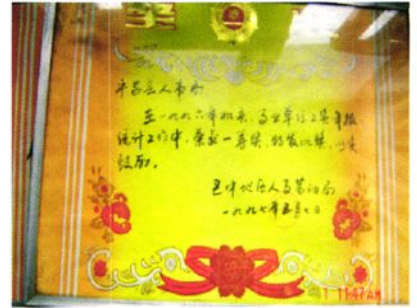 奖
平昌县人事局
在一九九六年机关、事业单位工资年报
统计工作中,荣获一等奖,特发此奖,以资
鼓励。
巴中地区人事劳动局
一九九七年五月七日
1 11:47AM